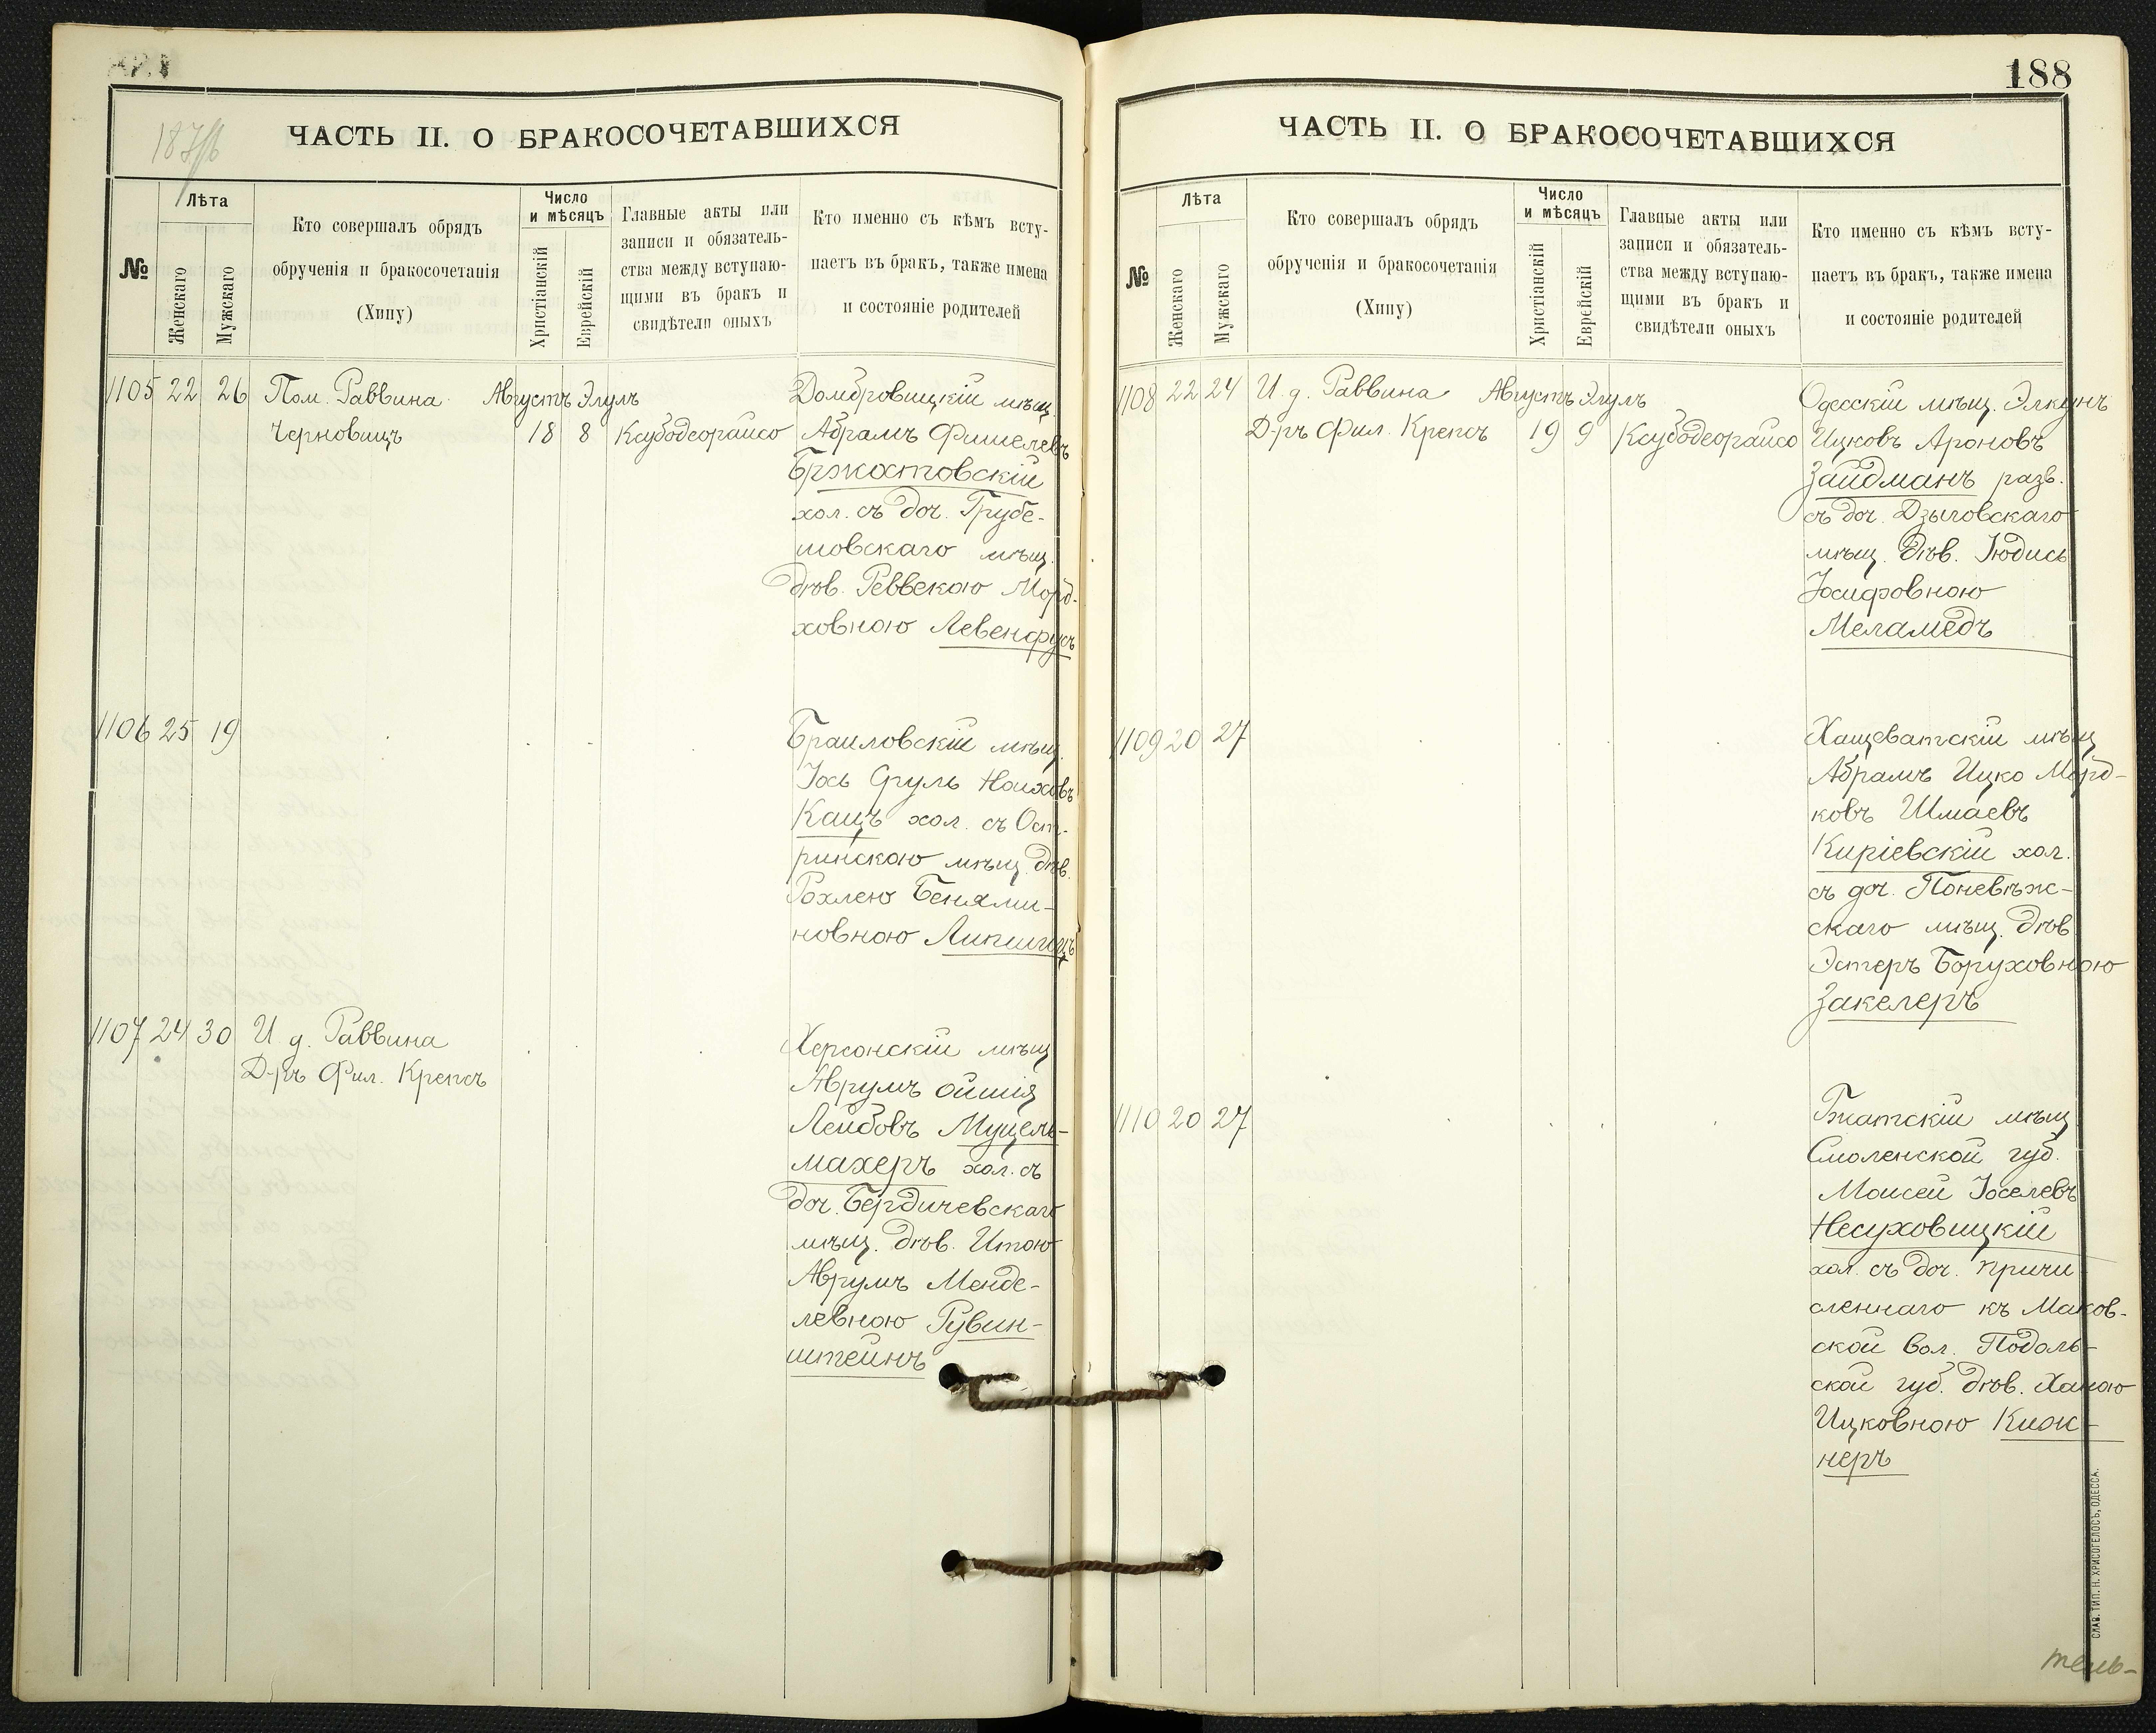 187/б
ЧАСТЬ II. О БРАКОСОЧЕТАВШИХСЯ
№
Лѣта
Женскаго
Мужскаго
Кто совершалъ обрядъ
обрученія и бракосочетанія
(Хипу)
Число
и мѣсяцъ
Христіанскій
Еврейскій
Главные акты или
записи и обязатель-
ства между вступаю-
щими въ бракъ и
свидѣтели оныхъ
Кто именно съ кѣмъ всту-
паетъ въ бракъ, также имена
и состояніе родителей
1105 22 26 Пом. Раввина Августъ Элулъ Домбровицкій мѣщ.
Черновицъ 18 8 Ксубодеорайсо Абрамъ Фишелевъ
Бржостовскій
хол. съ доч. Грубе-
шовскаго мѣщ.
дѣв. Реввекою Морд-
ховною Левенфусъ
1106 25 19 Браиловскій мѣщ.
Іось Сруль Ноиховъ
Кацъ хол. съ Ост-
ринскою мѣщ. дѣв.
Рохлею Бенями-
новною Липшицъ
1107 24 30 И д. Раввина Херсонскій мѣщ
Д-ръ Фил. Крепсъ Аврумъ Ойшія
Лейбовъ Муцель-
махеръ хол. съ
доч. Бердичевскаго
мѣщ. дѣв. Итою
Аврумъ Менде-
левною Рувин-
штейнъ
188
ЧАСТЬ II. О БРАКОСОЧЕТАВШИХСЯ
№
Лѣта
Женскаго
Мужскаго
Кто совершалъ обрядъ
обрученія и бракосочетанія
(Хипу)
Число
и мѣсяцъ
Христіанскій
Еврейскій
Главные акты или
записи и обязатель-
ства между вступаю-
щими въ бракъ и
свидѣтели оныхъ
Кто именно съ кѣмъ всту-
паетъ въ бракъ, также имена
и состояніе родителей
1108 22 24 И. д. Раввина Августъ Элулъ Одесскій мѣщ. Элкунъ
Д-ръ Фил. Крепсъ 19 9 Ксубодеорайсо Ицковъ Ароновъ
Зайдманъ разв.
съ доч. Дзыговскаго
мѣщ. дѣв. Іюдись
Іосифовною
Меламедъ
1109 20 27 Хащеватскій мѣщ
Абрамъ Ицко Морд-
ковъ Шмаевъ
Киріевскій хол.
съ доч. Поневѣж-
скаго мѣщ. дѣв
Эстеръ Боруховною
Закелеръ
1110 20 27 Гжатскій мѣщ
Смоленской губ.
Моисей Іоселевъ
Несуховицкій
хол. съ доч. причи
сленнаго къ Маков-
ской вол. Подоль-
ской губ. дѣв. Ханою
Ицковною Киж-
неръ
СЛАВ. ТИП. Н. ХРИСОГЕЛОСЪ, ОДЕССА.